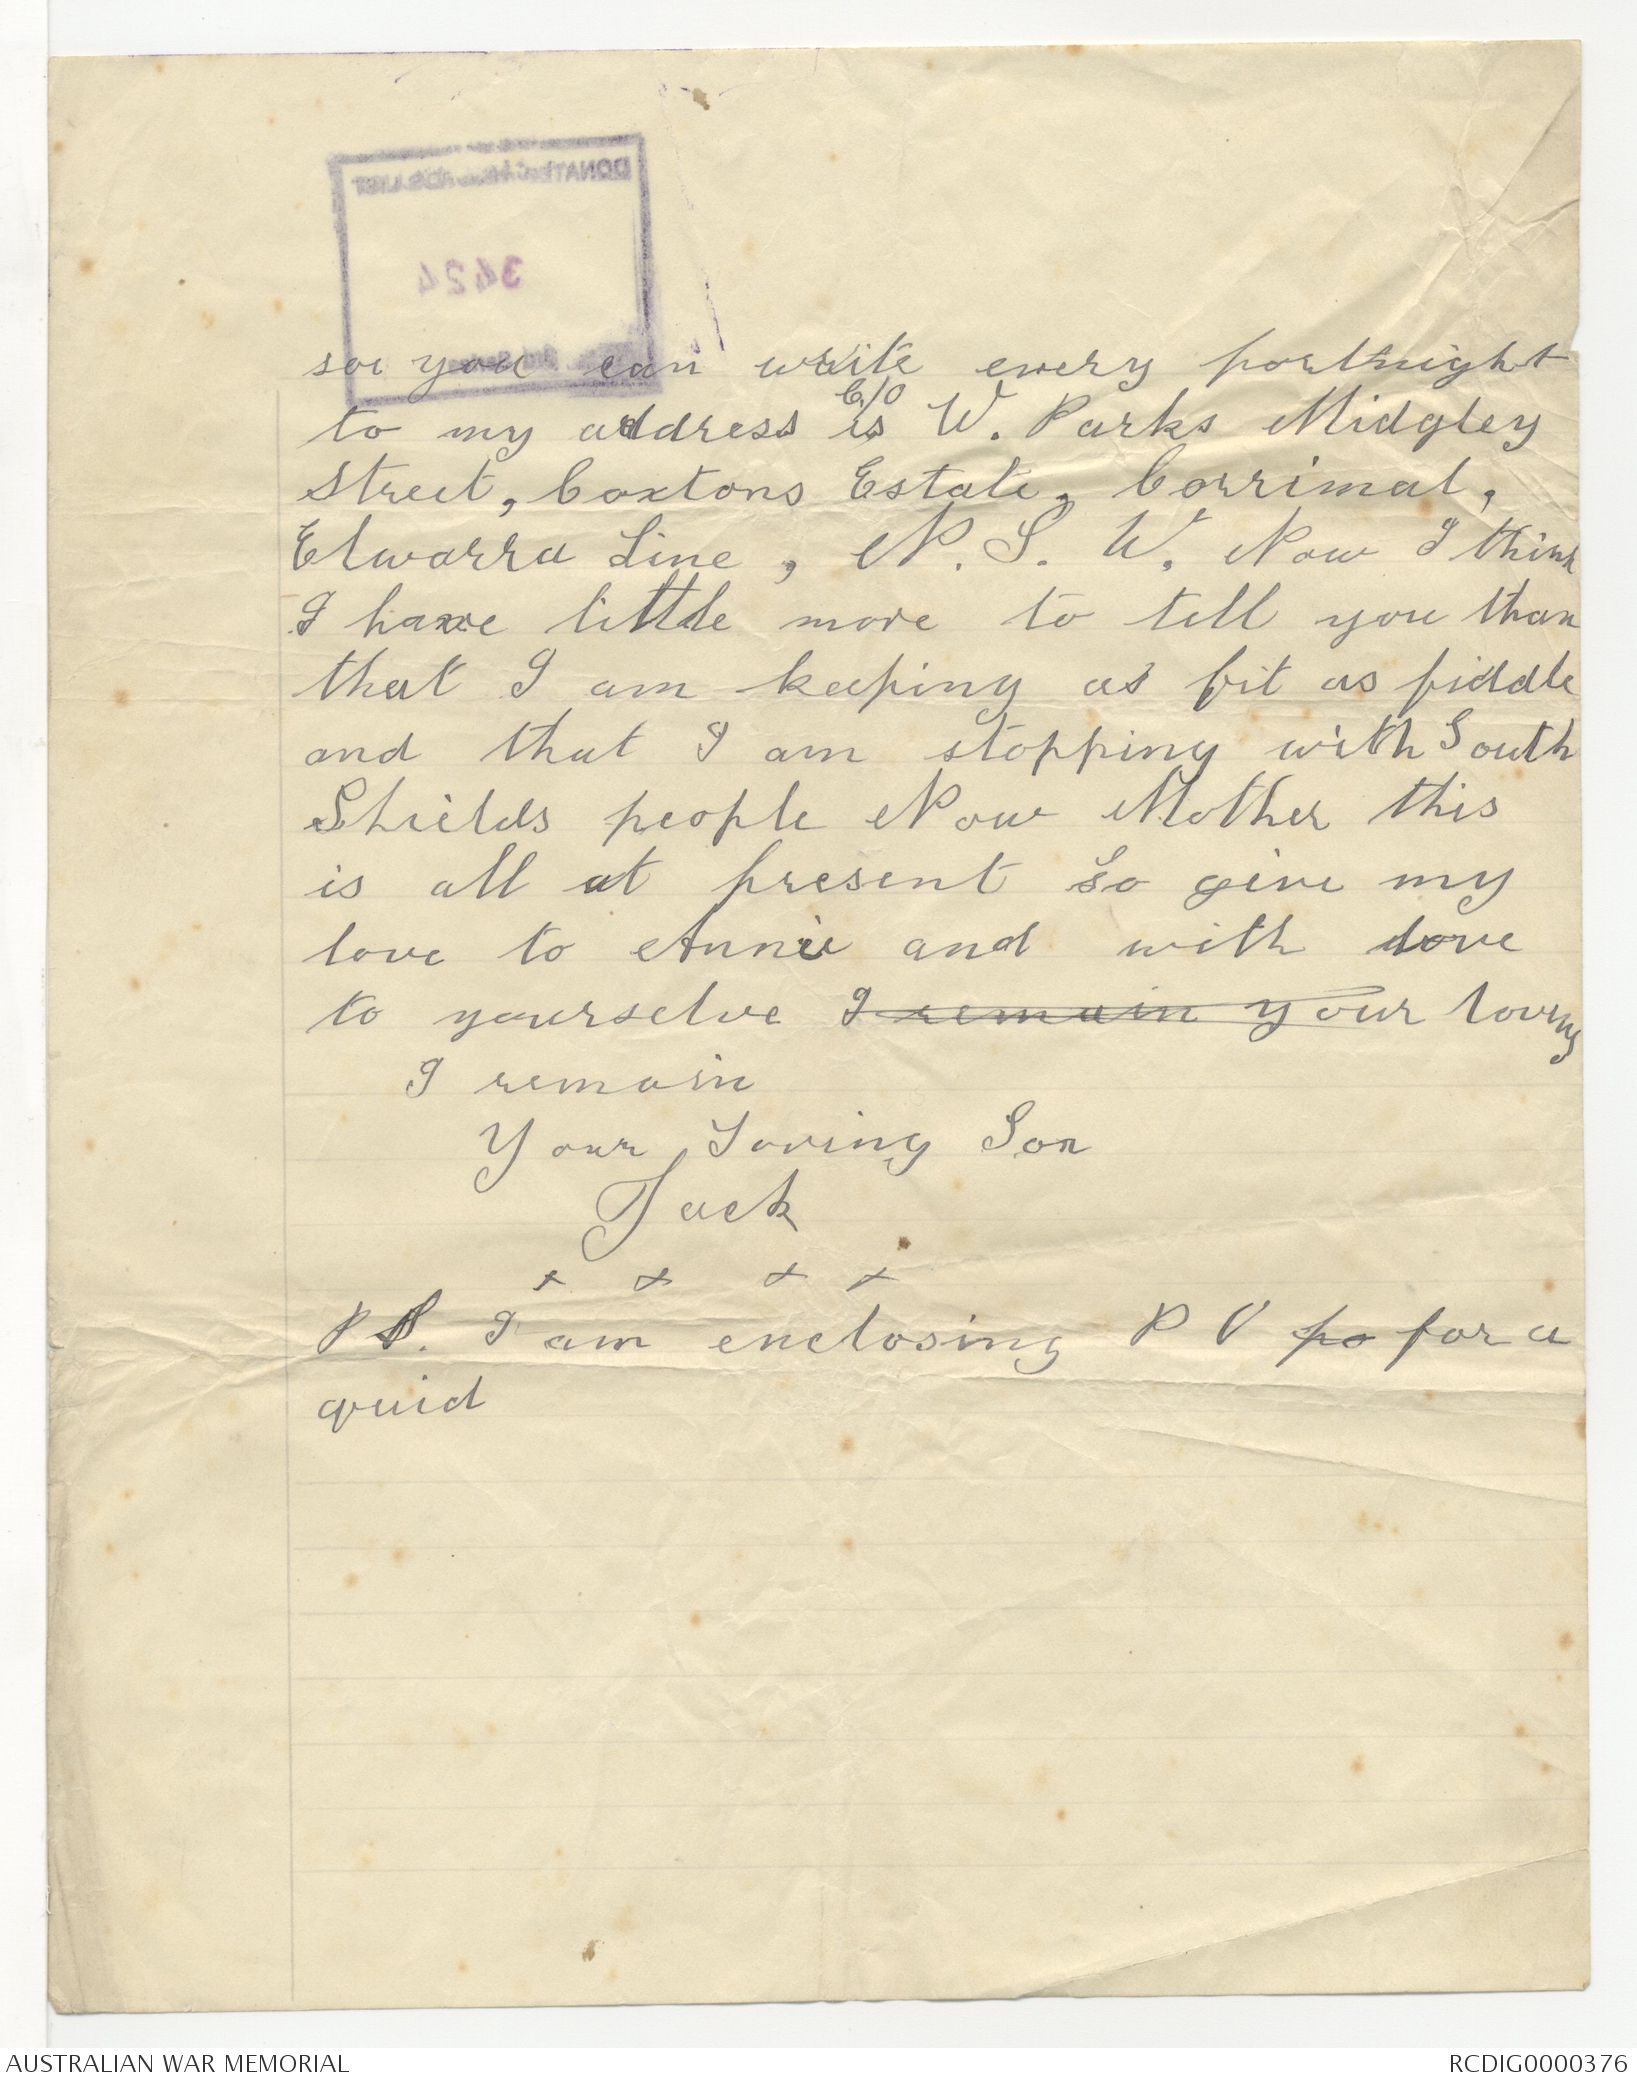 3424
soe you can write every fortnight
c/o
to my address is W. Parks Midgley
Street, Coxtons Estate, Corrimal,
Elwarra Line, N. S. W. Now I think
I have little more to tell you than
that I am keeping as fit as fiddle
and that I am stopping with South
Shields people Now Mother this
is all at present So give my
love to Annie and with love
to yourselve I remain your loving
I remain
Your Loving Son
Jack
x x x x
P S. I am enclosing P O po for a
quid
AUSTRALIAN WAR MEMORIAL
RCDIG0000376